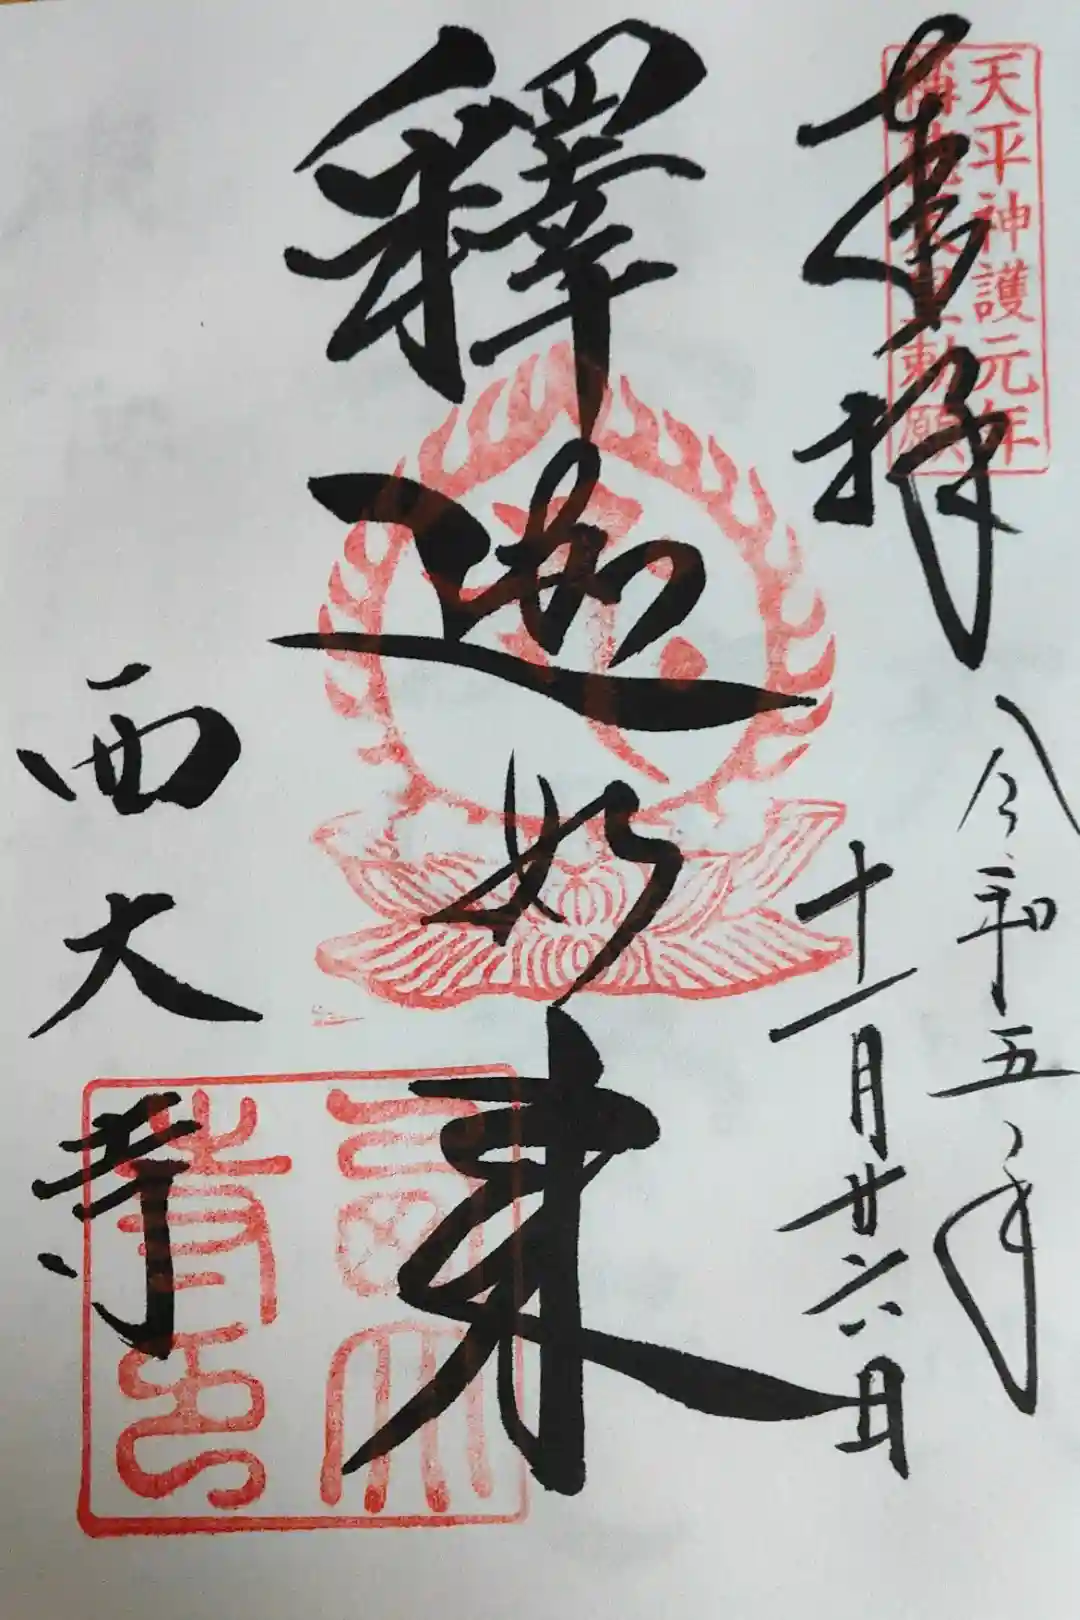 天平神護元年
稱德天皇勅願
奉拝
令和五年
十一月廿六日
釋迦如来
西大寺